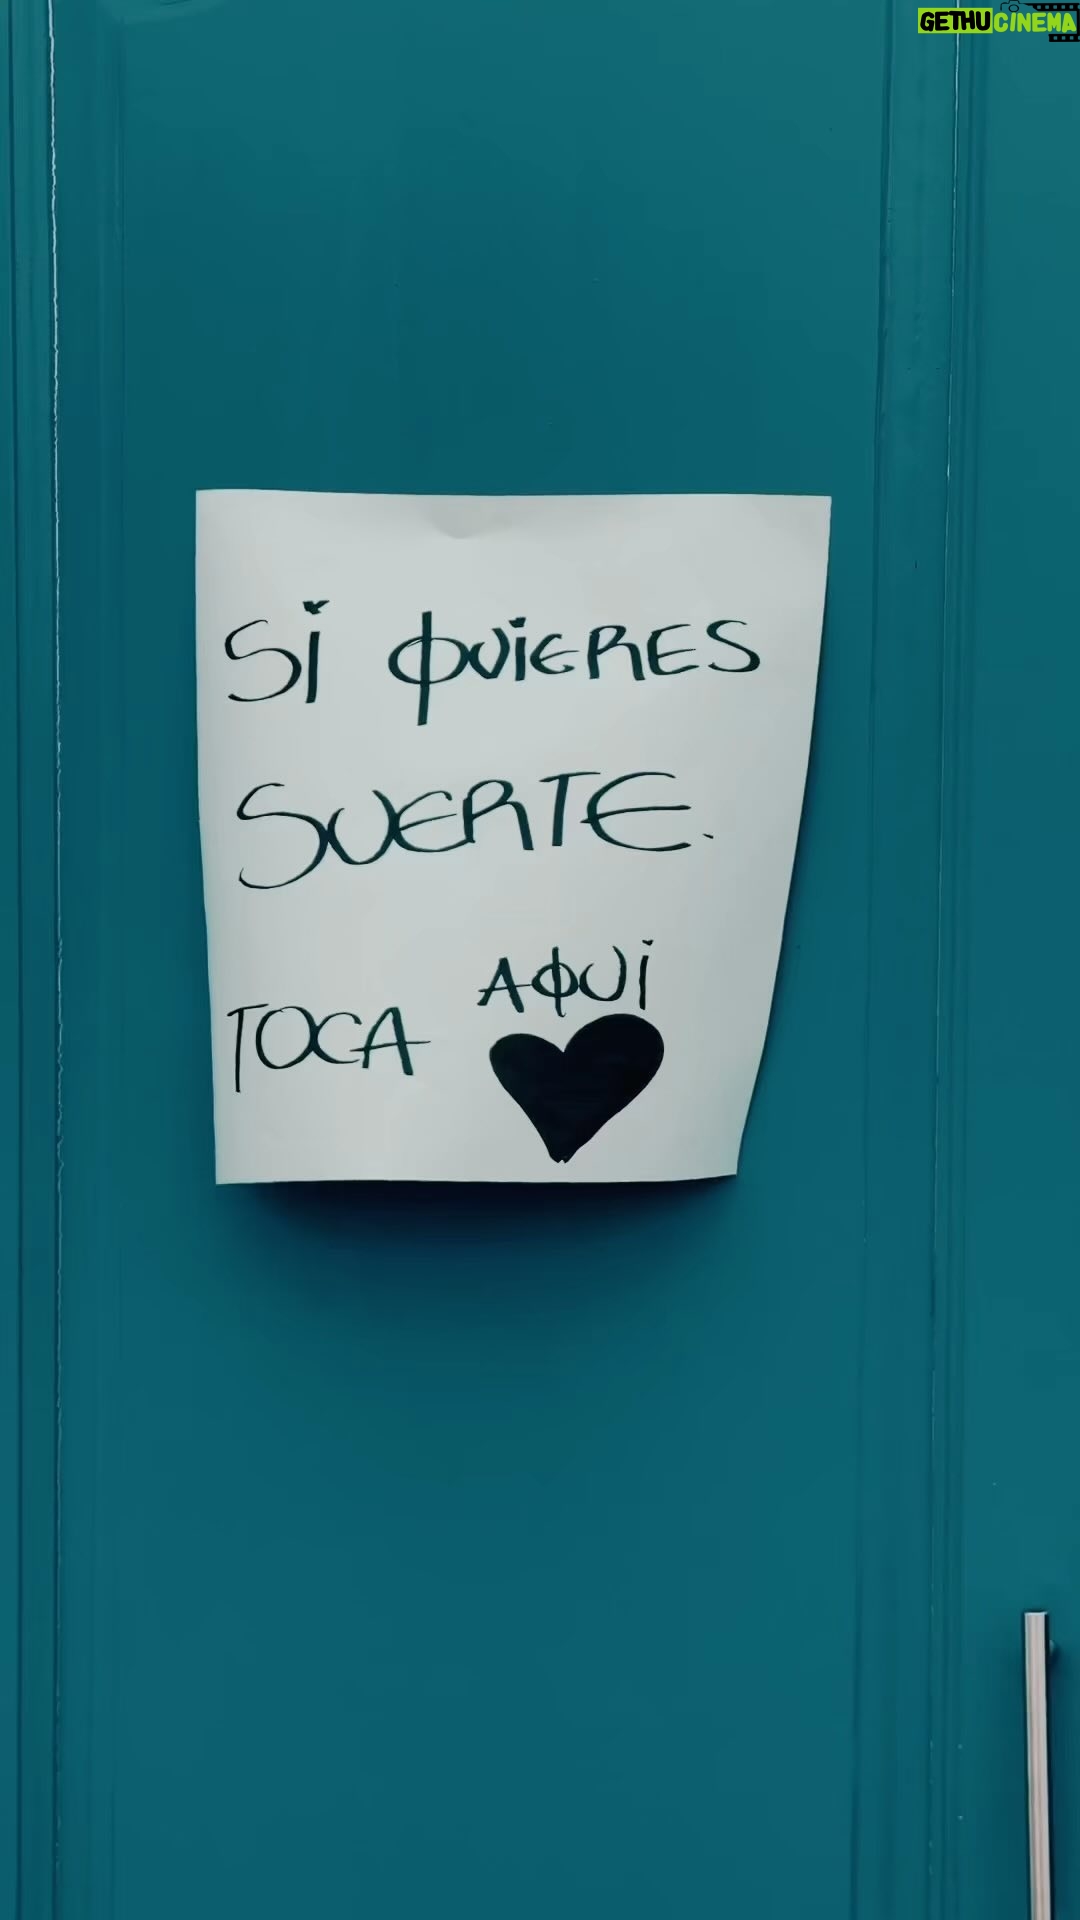 GETHUCINEMA
SI QUIERES
SUERTE.
TOCA AQUI